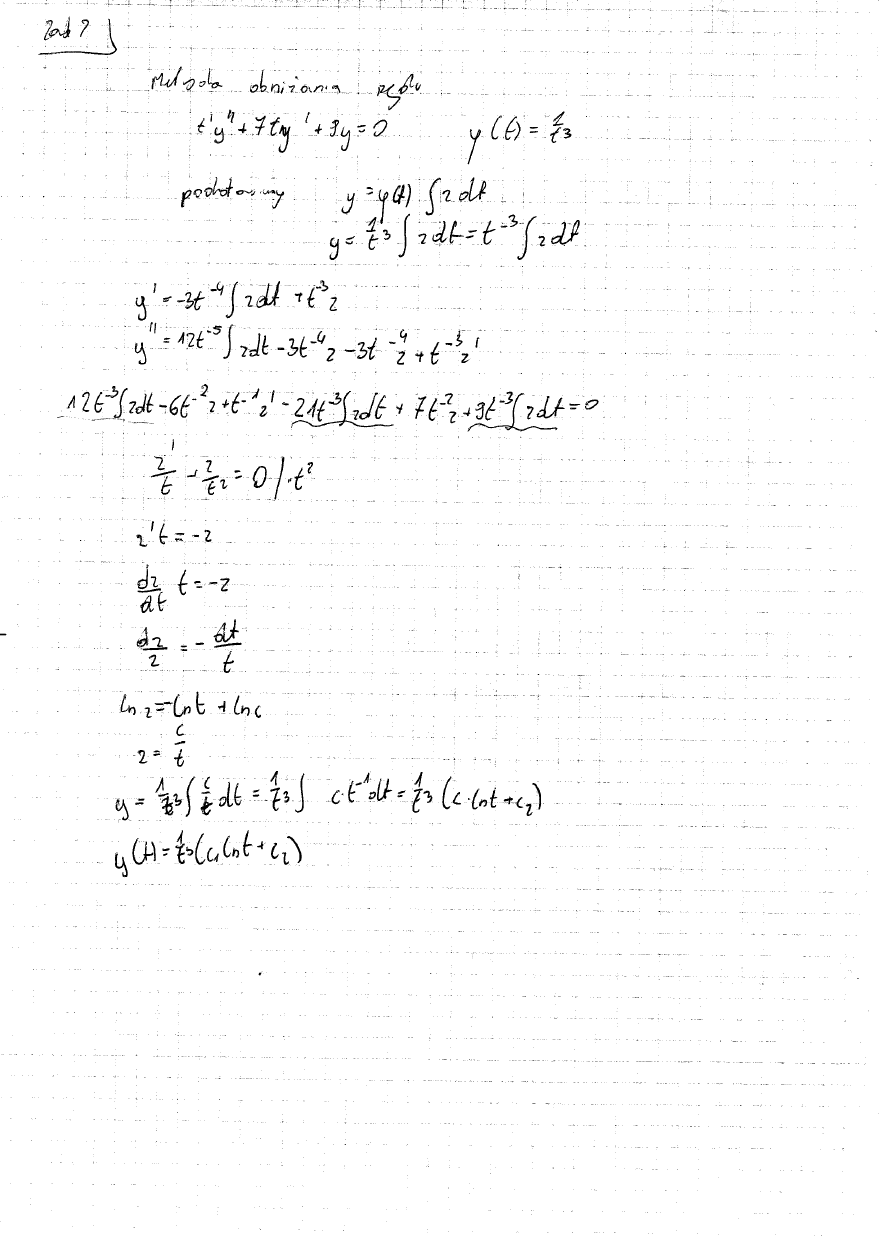 Zad 7
Metoda obniżania rzędu
t'y'' + 7ty' + 9y = 0 y(t) = 1/t³
podstawmy y = y(t) ∫z dt
y = 1/t³ ∫z dt = t⁻³ ∫z dt
y' = -3t⁻⁴ ∫z dt + t⁻³ z
y'' = 12t⁻⁵ ∫z dt - 3t⁻⁴ z - 3t⁻⁴ z + t⁻³ z'
12t⁻³ ∫z dt - 6t⁻² z + t⁻¹ z' - 21t⁻³ ∫z dt + 7t⁻² z + 9t⁻³ ∫z dt = 0
z'/t + z/t² = 0 /·t²
z't = -z
dz/dt t = -z
dz/z = - dt/t
ln z = -ln t + ln c
z = c/t
y = 1/t³ ∫ c/t dt = 1/t³ ∫ c·t⁻¹ dt = 1/t³ (c·ln t + c₂)
y(t) = 1/t³ (c₁ ln t + c₂)